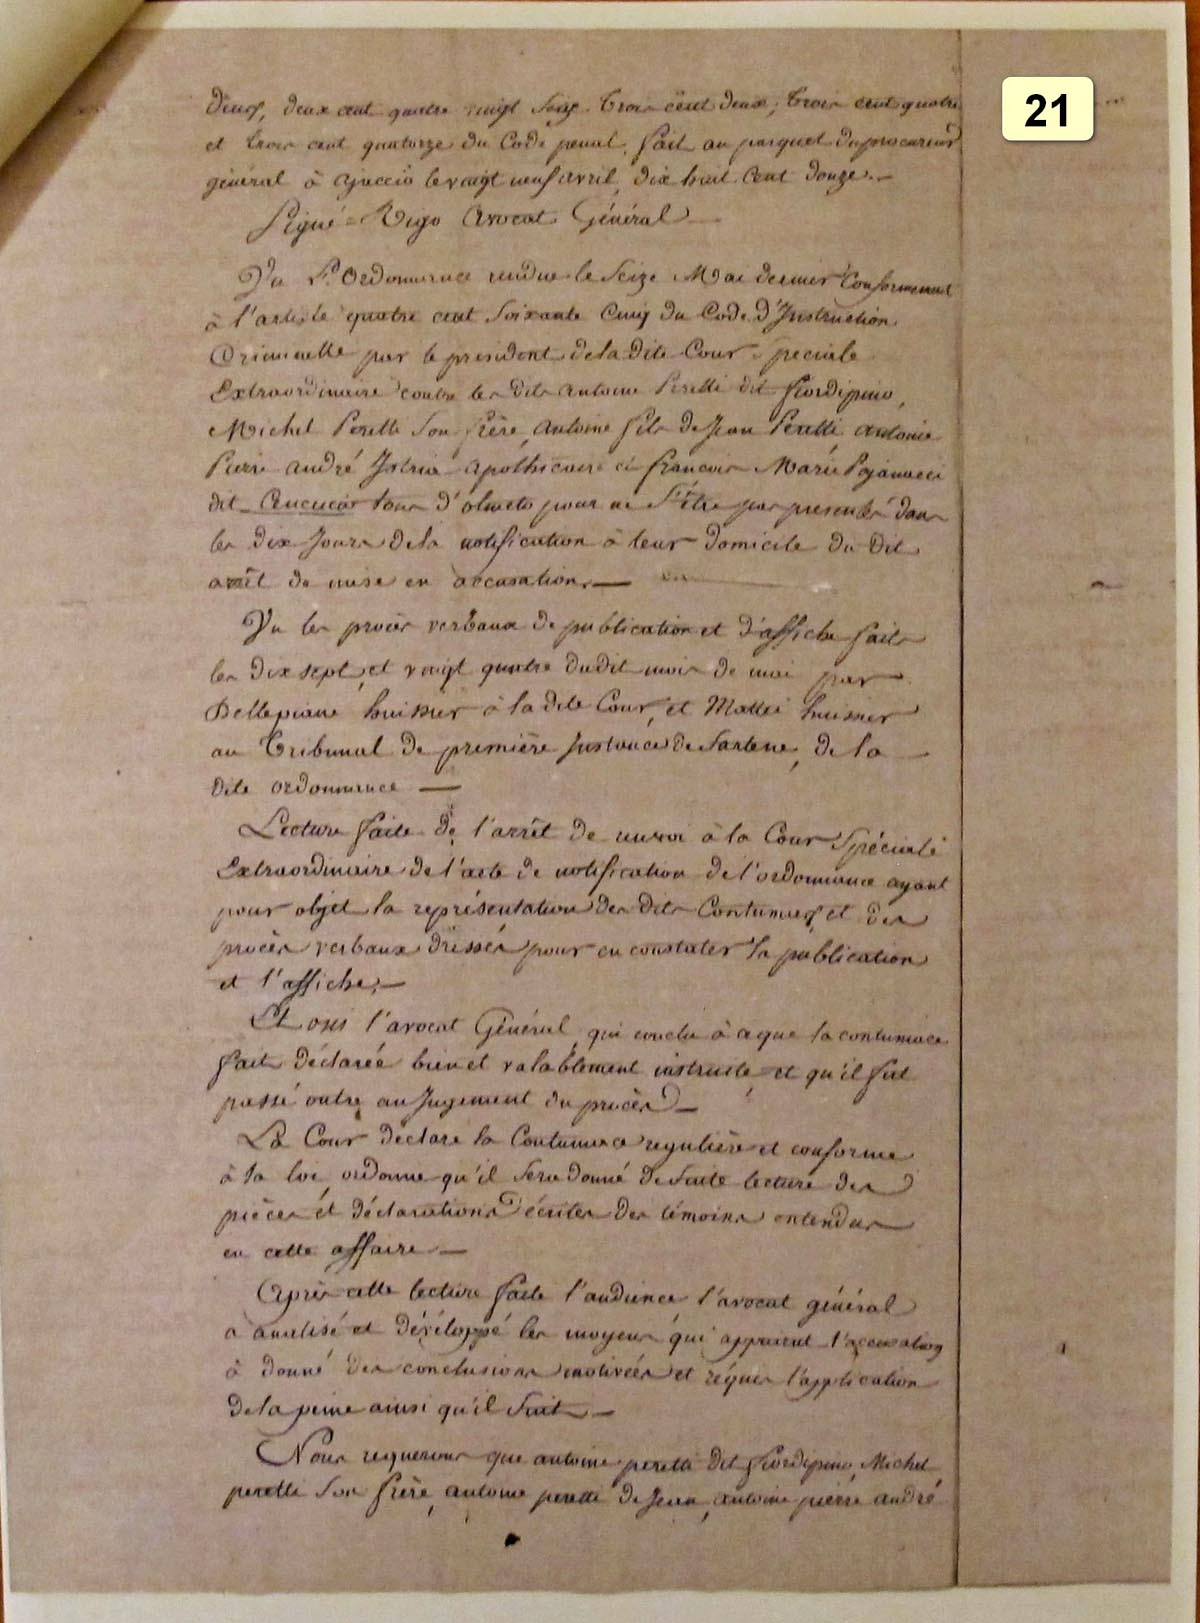 21
deux, deux cent quatre vingt seize trois cent deux; trois cent quatre
et trois cent quatorze du Code penal, fait au parquet du procureur
général à Ajaccio le vingt neuf avril dix huit Cent Douze.-
Signé = Rigo Avocat Général
Vu l'Ordonnance rendue le Seize Mai dernier Conformement
à l'article quatre cent Soixante Cinq du Code D'Instruction
Criminelle par le president de la dite Cour Speciale
Extraordinaire contre les dits antoine Peretti dit fiordipino,
Michel Peretti Son frère, Antoine fils de Jean Peretti, antoine
Pierre andré Istria Apothicaire et francois Marie Pajanacci
dit tous d'olmeto pour ne S'être pas presentés dans
les dix Jours de la notification à leur domicile du dit
arrêt de mise en accusation.—
Vu les procès verbaux de publication et d'affiche faits
les dix sept, et vingt quatre dudit mois de mai par
Dellepiane huissier à la dite Cour, et Mattei huissier
au Tribunal de première Instance de Sartene, de la
dite ordonnance —
Lecture faite de l'arrêt de renvoi à la Cour Spéciale
Extraordinaire de l'acte de notification de l'ordonnance ayant
pour objet la représentation des dits Contumax, et des
procès verbaux dressés pour en constater la publication
et l'affiche.—
Et oui l'avocat Général, qui conclu à ce que la contumace
fait déclarée bien et valablement instruite et qu'il fut
passé outre au Jugement du procès —
La Cour déclare la Contumace régulière et conforme
à la loi, ordonne qu'il sera donné de suite lecture des
pièces et déclarations écrites des témoins entendus
en cette affaire.—
Après cette lecture faite l'audience l'avocat général
a analisé et développé les moyens qui appuient l'accusation
à donné des conclusions motivées et réquis l'application
de la peine ainsi qu'il Suit —
Nous requerons que antoine peretti dit fiordipino, Michel
peretti Son frère, antoine peretti de Jean, antoine pierre andré